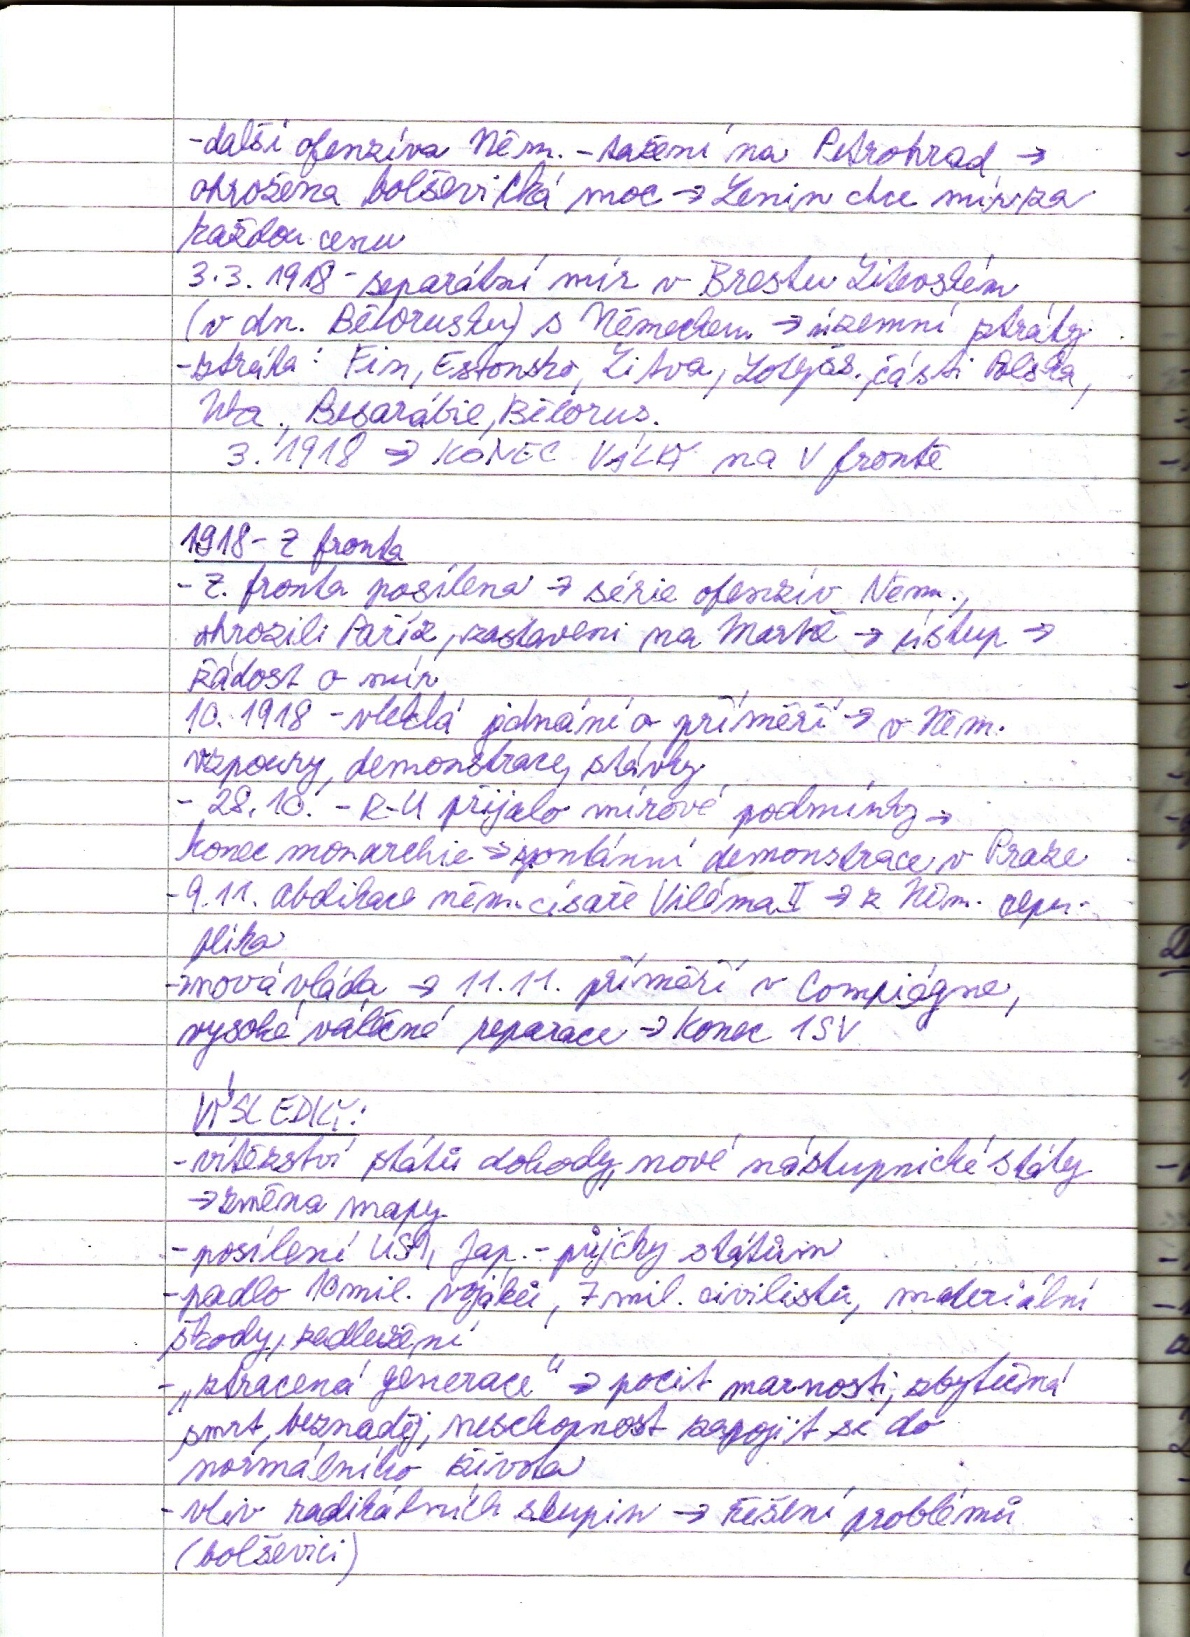 -další ofenzíva Něm. - tažení na Petrohrad →
ohrožena bolševická moc → Lenin chce mír za
každou cenu
3.3. 1918 - separátní mír v Brestu Litevském
(v dn. Bělorusku) s Německem → územní ztráty
-ztráta: Fin, Estonsko, Litva, Lotyšs., části Polska,
Ukr., Besarábie, Bělorus.
3. 1918 → KONEC VÁLKY na V frontě
1918 - Z fronta
- Z. fronta posílena → série ofenzív Něm.,
ohrozili Paříž, zastaveni na Marně → ústup →
žádost o mír
10. 1918 - vleklá jednání o příměří → v Něm.
vzpoury, demonstrace, stávky
- 28.10. - R-U přijalo mírové podmínky →
konec monarchie → spontánní demonstrace v Praze
- 9.11. abdikace něm. císaře Viléma II → z Něm. repu-
blika
→ nová vláda → 11.11. příměří v Compiégne,
vysoké válečné reparace → konec 1SV
VÝSLEDKY:
- vítězství států dohody, nové nástupnické státy
→ změna mapy
- posílení USA, Jap. - půjčky státům
- padlo 10 mil. vojáků, 7 mil. civilistů, materiální
škody, zadlužení
- „ztracená generace“ → pocit marnosti, zbytečná
smrt, beznaděj, neschopnost zapojit se do
normálního života
- vliv radikálních skupin → řešení problémů
(bolševici)